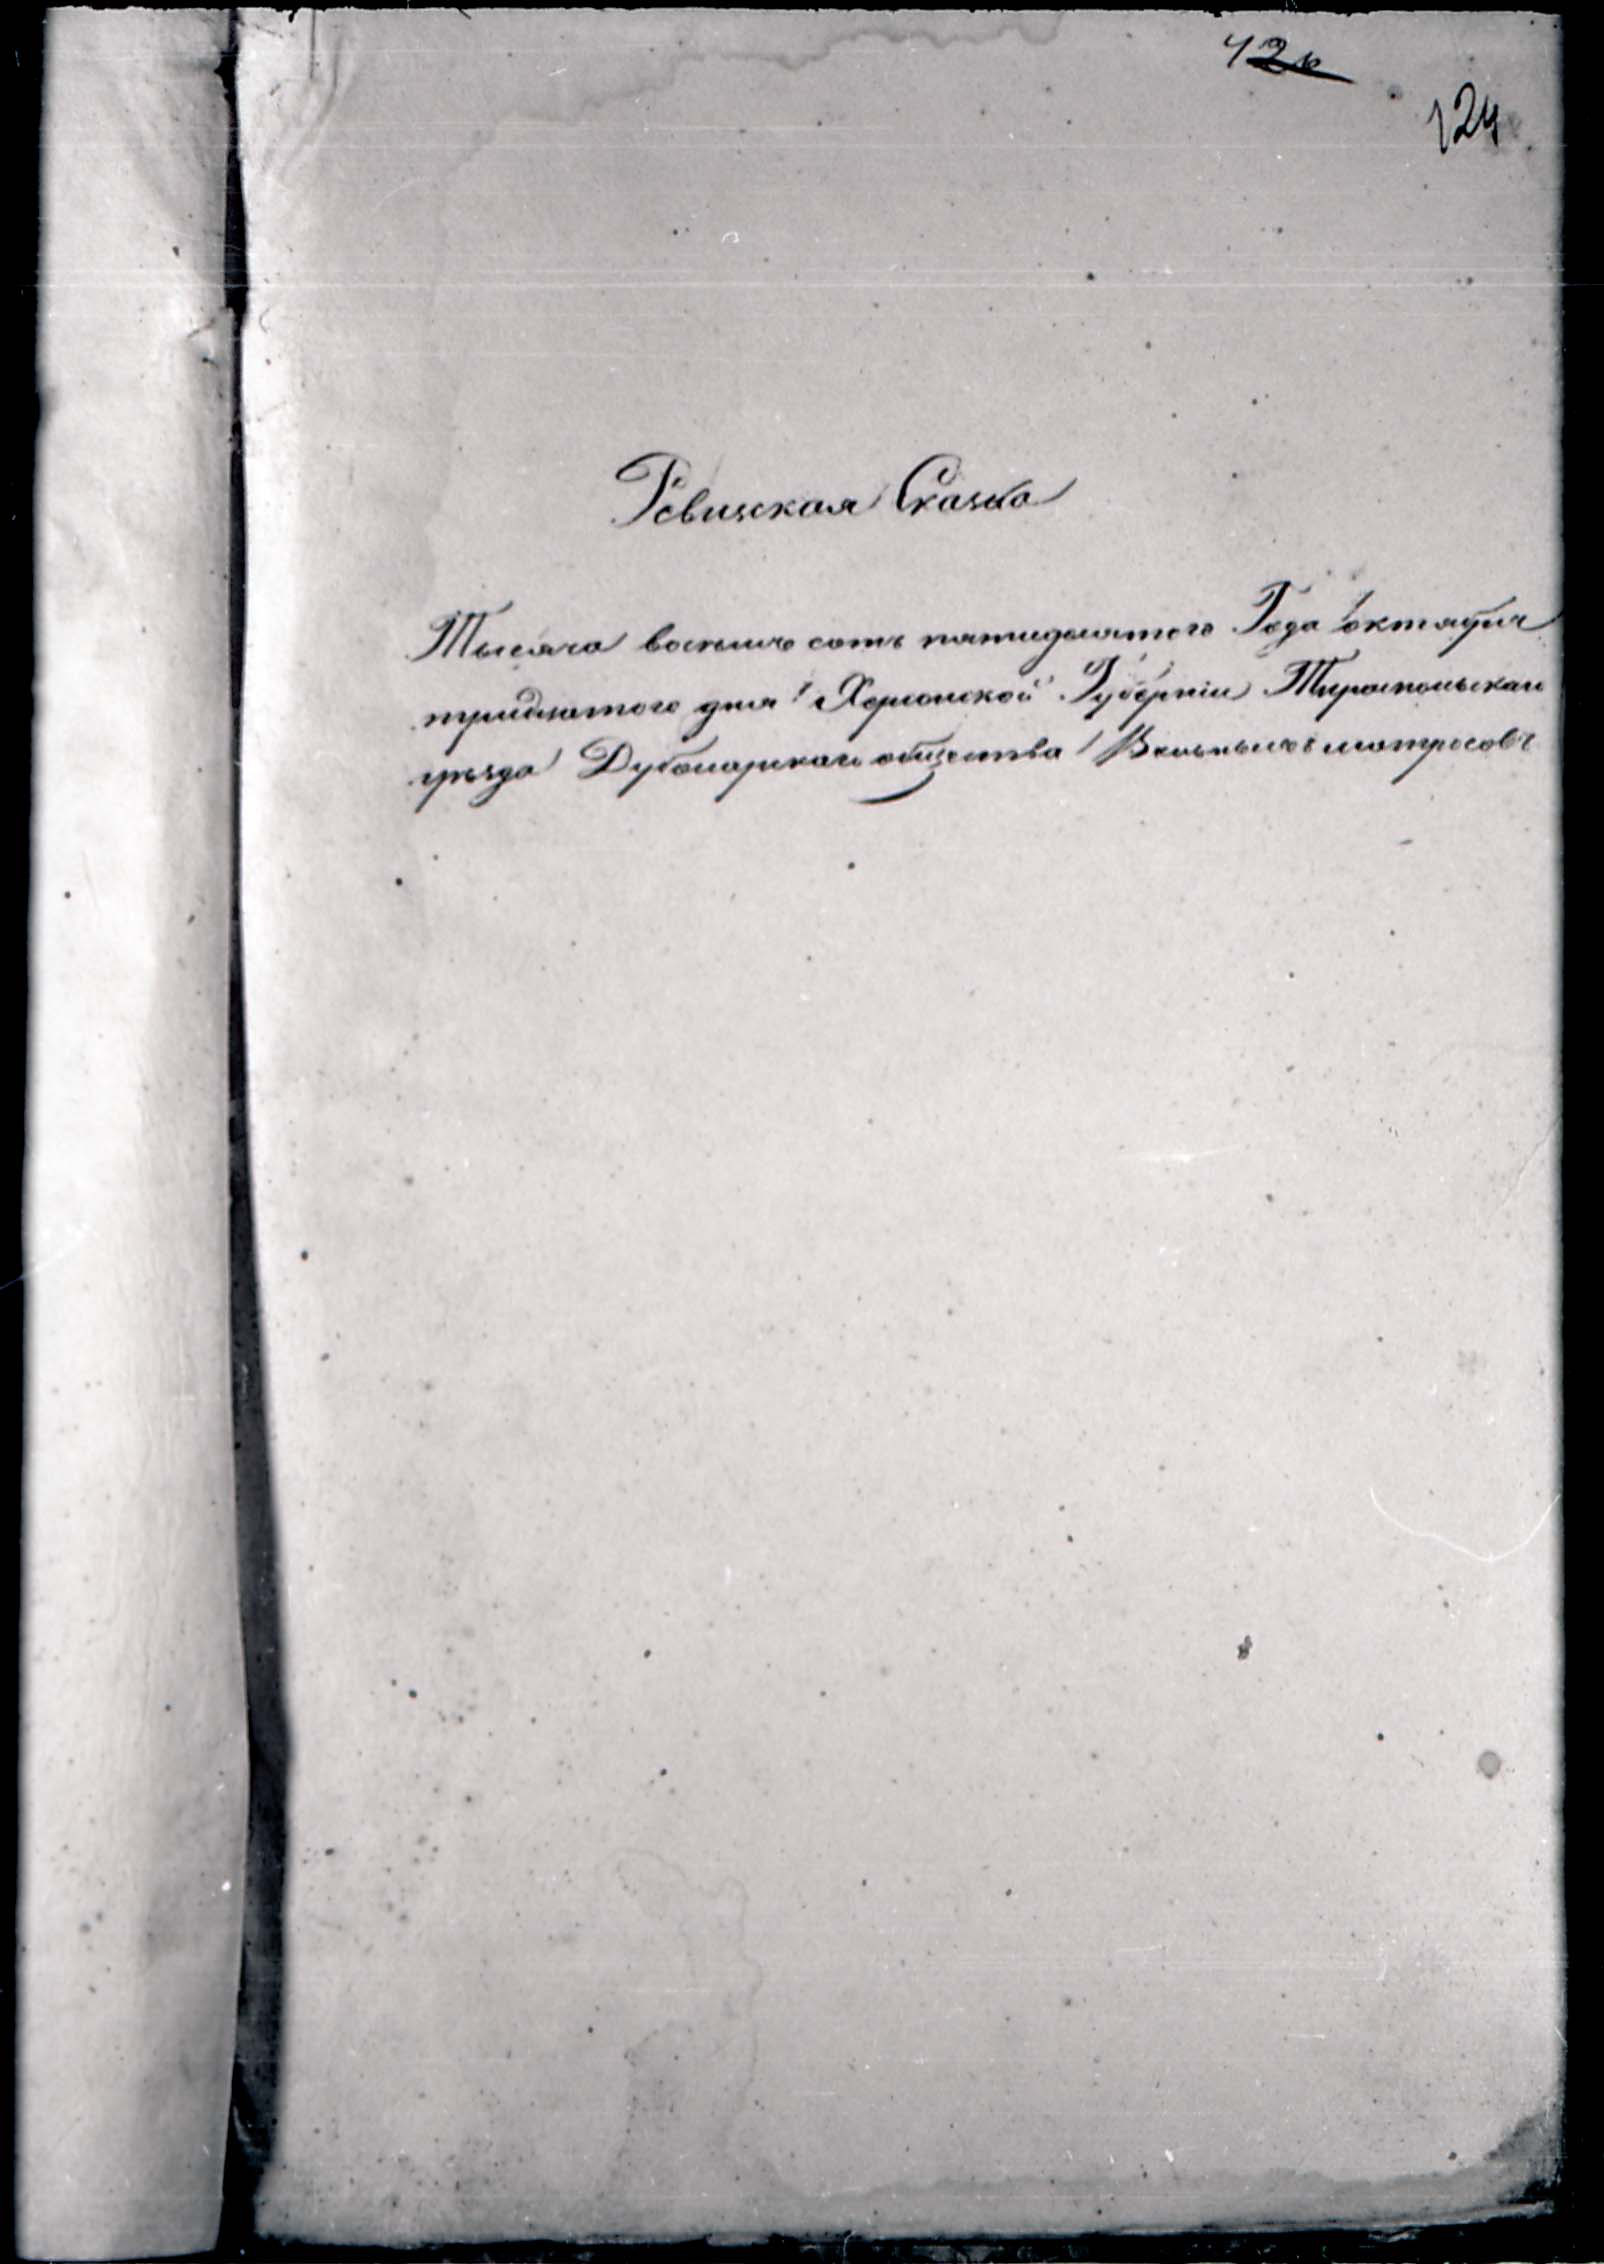 124
Ревизская Сказка
Тысяча восемь сотъ пятидесятого Года октября
тридцатого дня Херсонской Губерніи Тираспольскаго
уѣзда Дубосарскаго общества Вольныхъ матросовъ